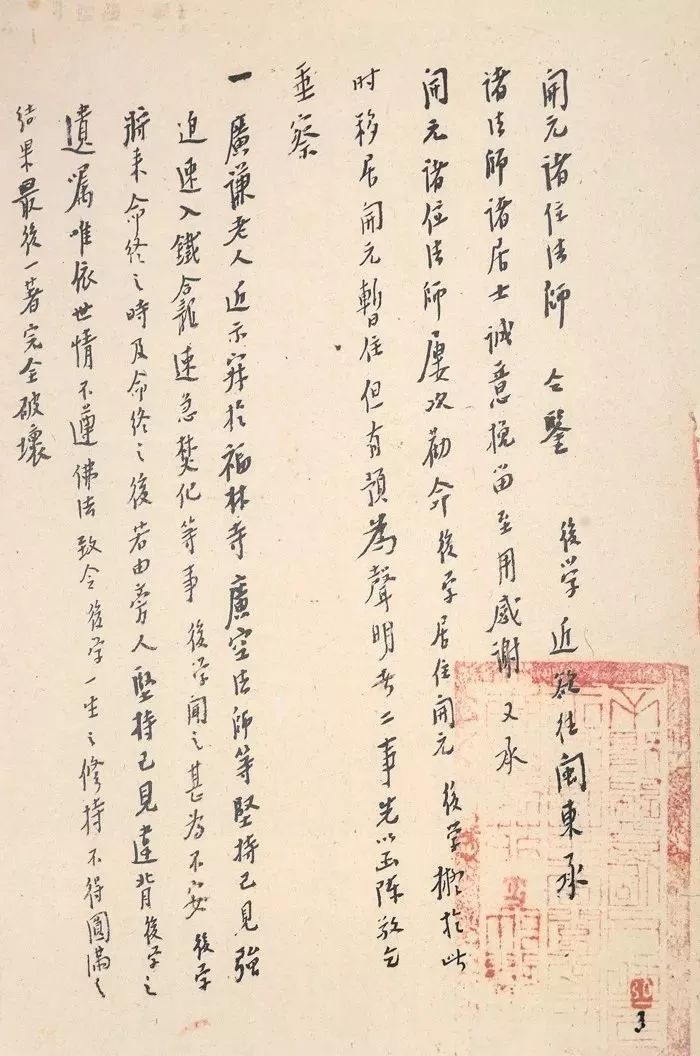 開元諸位法師 仝鑒 後学近欲往閩東承
諸法師諸居士誠意挽留至用感謝又承
開元諸位法師屢次勸命後学居住開元後学擬於此
时移居開元暫住但有須為聲明者二事先以函陳敬乞
垂察
一 廣謙老人近示寂於福林寺廣空法師等堅持己見強
迫速入鐵龕速急焚化等事後学聞之甚為不安後学
將来命終之時及命終之後若由旁人堅持己見違背後学之
遺嘱唯依世情不遵佛法致令後学一生之修持不得圓滿之
结果最後一著完全破壞
3